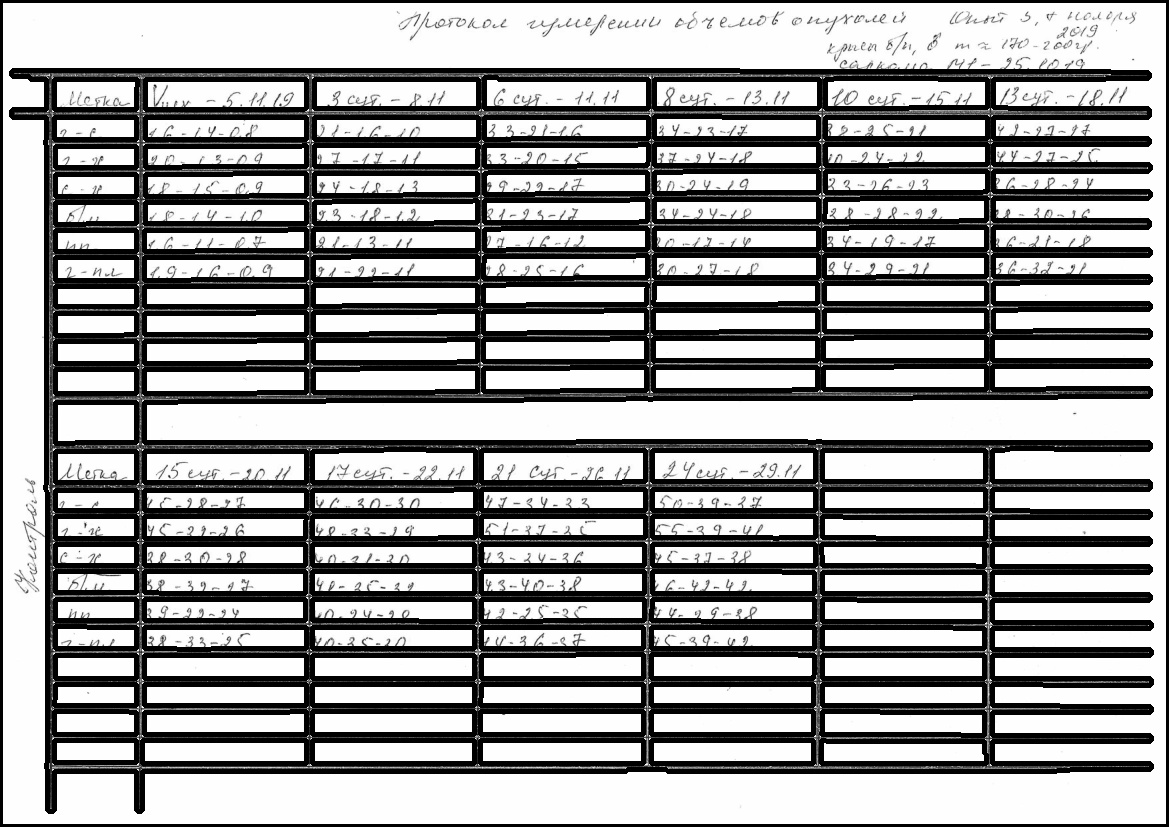 Протокол измерении объемов опухолей Опыт 3, 7 ноября
2019
крысы б/п, ♂ m ≈ 170-200гр.
саркома М1 - 25.10.19
Метка Vисх - 5.11.19 3 сут. - 8.11 6 сут. - 11.11 8 сут. - 13.11 10 сут - 15.11 13 сут. - 18.11
г-с 16-14-08 21-16-10 33-21-16 34-23-17 39-25-21 42-27-27
г-ж 20-13-09 27-17-11 33-20-15 37-24-18 40-24-22 44-27-25
с-ж 18-15-09 24-18-13 29-22-17 30-24-19 33-26-23 36-28-24
б/м 18-14-10 23-18-12 31-23-17 34-24-18 38-28-22 38-30-26
пп 16-11-07 21-13-11 27-16-12 30-17-14 34-19-17 36-21-18
г-пл 19-16-09 21-22-11 28-25-16 30-27-18 34-29-21 36-32-21
Контроль
Метка 15 сут. - 20.11 17 сут. - 22.11 21 сут. - 26.11 24 сут. - 29.11
г-с 45-28-27 46-30-30 47-34-33 50-39-37
г-ж 45-29-26 48-33-29 51-37-35 55-39-41
с-ж 38-30-28 40-31-30 43-34-36 45-37-38
б/м 38-32-27 41-35-32 43-40-38 46-42-42
пп 39-22-24 40-24-29 42-25-35 44-29-38
г-пл 38-33-25 40-35-30 44-36-37 45-39-42